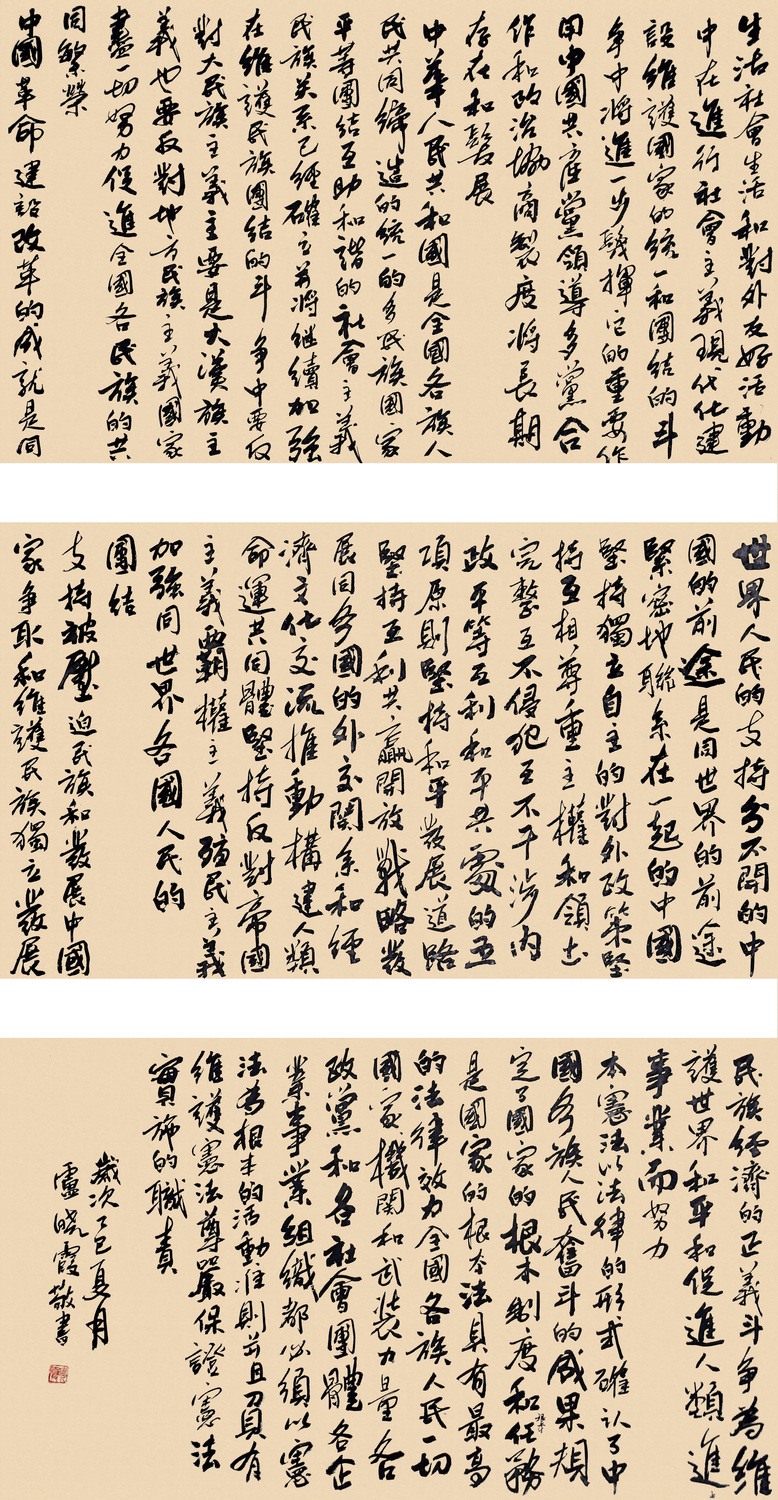 生活社會生活和對外友好活動
中在進行社會主義現代化建
設維護國家的統一和團結的斗
争中将進一步發揮它的重要作
用中國共産黨領導多黨合
作和政治協商製度将長期
存在和發展
中華人民共和國是全國各族人
民共同締造的統一的多民族國家
平等團結互助和諧的社會主義
民族关系已經確立并将继續加強
在維護民族團結的斗争中要反
對大民族主義主要是大漢族主
義也要反對地方民族主義國家
盡一切努力促進全國各民族的共
同繁榮
中國革命建設改革的成就是同
世界人民的支持分不開的中
國的前途是同世界的前途
緊密地聯系在一起的中國
堅持獨立自主的對外政策堅
持互相尊重主權和領土
完整互不侵犯互不干涉内
政平等互利和平共處的五
項原則堅持和平發展道路
堅持互利共贏開放戰略發
展同各國的外交関系和經
濟文化交流推動構建人類
命運共同體堅持反對帝國
主義霸權主義殖民主義
加強同世界各國人民的
團結
支持被壓迫民族和發展中國
家争取和維護民族獨立發展
民族經濟的正義斗争為維
護世界和平和促進人類進
事業而努力
本憲法以法律的形式確认了中
國各族人民奮斗的成果規
定了國家的根本制度和任務
是國家的根本法具有最高
的法律效力全國各族人民一切
國家機関和武装力量各
政黨和各社會團體各企
業事業組織都必須以憲
法為根本的活動准則并且負有
維護憲法尊嚴保證憲法
實施的職責
歲次乙巳夏月
盧曉霞敬書